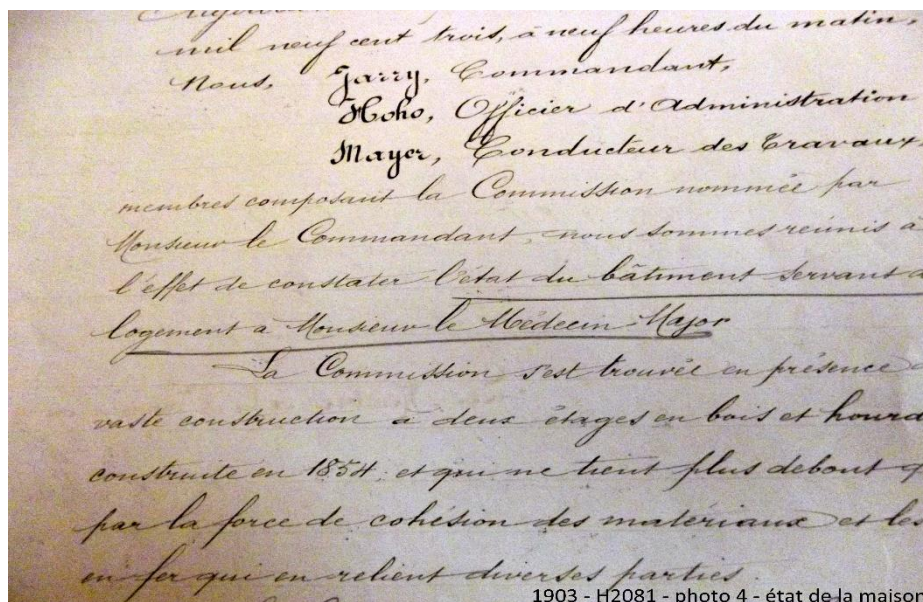 mil neuf cent trois, à neuf heures du matin,
Nous, Jarry, Commandant,
Hoho, Officier d'Administration
Mayer, Conducteur des Travaux,
membres composant la Commission nommée par
Monsieur le Commandant, nous sommes réunis à
l'effet de constater l'état du bâtiment servant d
logement à Monsieur le Médecin-Major
La Commission s'est trouvée en présence
vaste construction à deux étages en bois et hourd
construite en 1854, et qui ne tient plus debout q
par la force de cohésion des matériaux et les
en fer qui en relient diverses parties.
1903 - H2081 - photo 4 - état de la maison